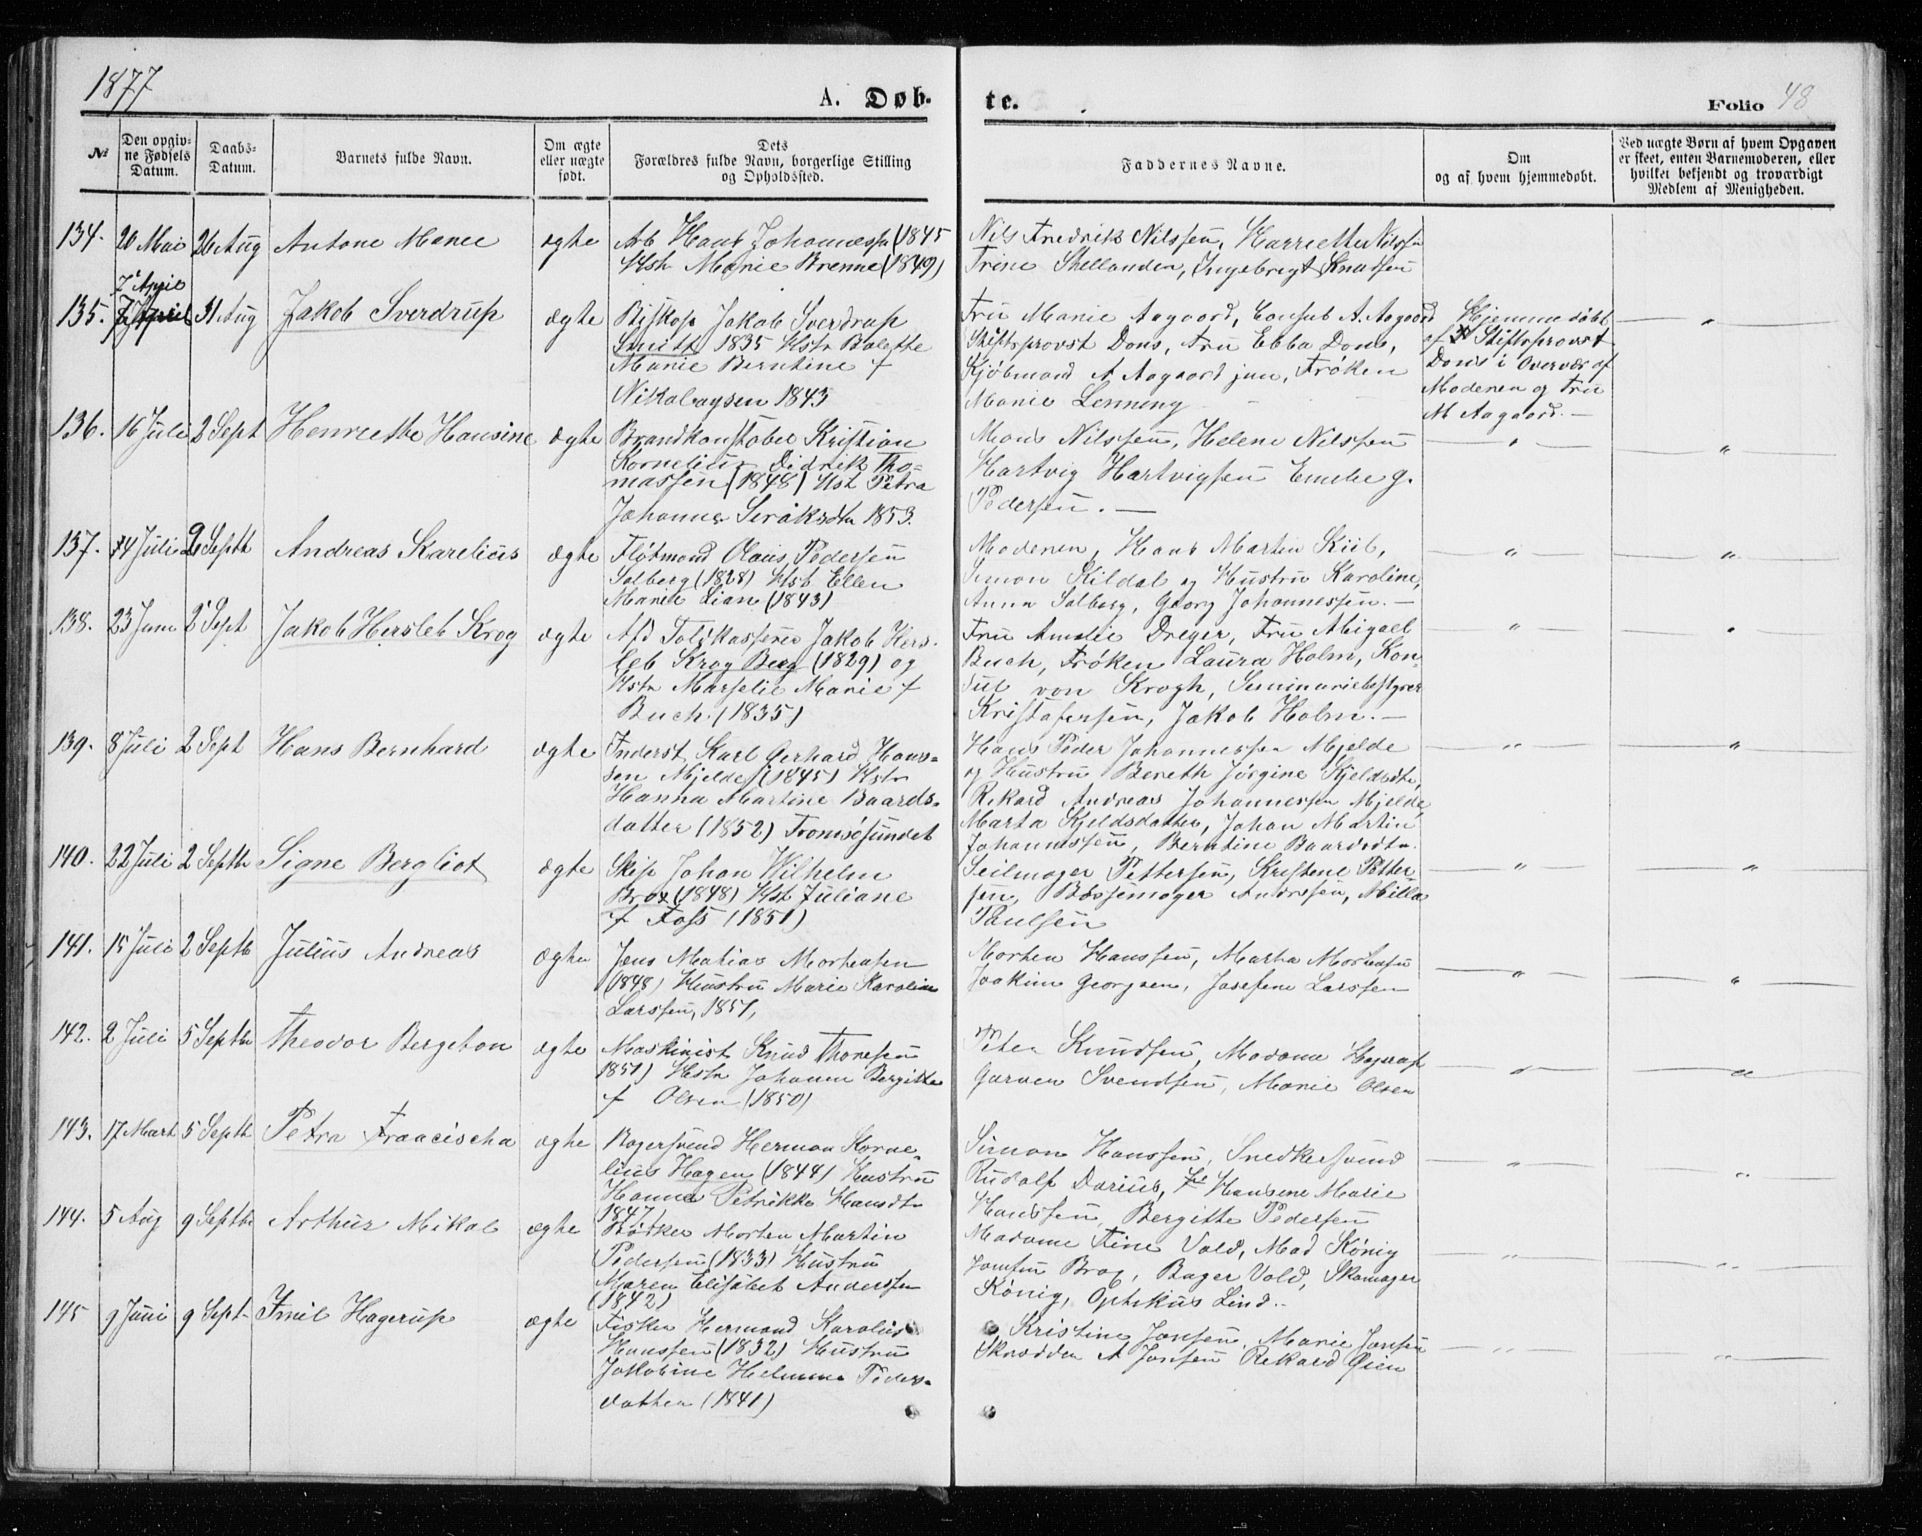 1877
A. Døb-
te.
Folio 48
№
Den opgiv-
ne Fødsels
Datum.
Daabs-
Datum.
Barnets fulde Navn.
Om ægte
eller uægte
født.
Dets
Forældres fulde Navn, borgerlige Stilling
og Opholdssted.
Faddernes Navne.
Om
og af hvem hjemmedøbt.
Ved uægte Børn af hvem Opgaven
er skeet, enten Barnemoderen, eller
hvilket bekjendt og troværdigt
Medlem af Menigheden.
134. 20 Mai 26 Aug Antone Marie ægte
Arb Hans Johannessen (1845
Hst Marie Brenne (1849)
Nils Fredrik Nilssen, Harriette Nilssen
Trine Skellanden, Ingebregt Knudsen
7 April
135. 7 April 31 Aug Jakob Sverdrup ægte
Biskop Jakob Sverdrup
Smitt 1835 Hstr Bolette
Marie Berntine f
Nikolaysen 1843
Fru Marie Aagaard, Consul A. Aagaard
Stiftsprovst Dons, Fru Ebba Dons,
Kjøbmand A Aagaard jun, Frøken
Marie Lenning
Hjemmedøbt
af Stiftsprovst
Dons i Overvær af
Moderen og Fru
M Aagaard. —
136. 16 Juli 2 Sept Henriette Hansine ægte
Brandkonstabel Kristian
Kornelius Didrik Tho-
massen (1848) Hst Petra
Johanna Siråksdtr 1853.
Mons Nilssen, Helene Nilssen
Hartvig Hartvigsen Emelie g.
Pedersen. —
137. 14 Juli 2 Septb Andreas Karelius ægte
Fløtmand Olaus Pedersen
Solberg (1828) Hst Ellen
Marie Lian (1843)
Moderen, Hans Martin Kiil,
Simon Kildal og Hustru Karoline,
Anna Solberg, Georg Johannessen. —
138. 23 Juni 2 Sept Jakob Hersleb Krog ægte
Afd Toldkasserer Jakob Hers-
leb Krog Berg (1829) og
Hstr Marselie Marie f
Buch. (1835)
Fru Amalie Dreyer, Fru Abigael
Buch, Frøken Laura Holm, Kon-
sul von Krogh, Seminariebestyrer
Kristofersen, Jakob Holm. —
139. 8 Juli 2 Sept Hans Bernhard ægte
Inderst Karl Gerhard Hans-
sen Mjelde (1845) Hstr
Hanna Martine Baards-
datter (1852) Tromsøsundet
Hans Peder Johannessen Mjelde
og Hustru Bereth Jørgine Kjeldsdtr,
Rikard Andreas Johannessen Mjelde,
Marta Kjeldsdatter, Johan Martin
Johannessen, Berntine Baardsdtr.
140. 22 Juli 2 Septbr Signe Bergliot ægte
Skip Johan Wilhelm
Brox (1848) Hst Juliane
f Foss (1851)
Seilmager Pettersen, Kristine Petter-
sen, Bøssemager Andresen, Milla
Paulsen
141. 15 Juli 2 Septb Julius Andreas ægte
Jens Matias Mortensen
(1848) Hustru Marie Karoline
Larssen, 1851,
Morten Hanssen, Marta Mortensen
Joakim Georgsen, Josefine Larssen
142. 2 Juli 5 Septbr Theodor Bergeton ægte
Maskinist Knud Thoresen
1851) Hstr Johanne Bergitte
f Olsen (1850)
Peter Knudsen, Madame Hagerup
Garver Svendsen, Marie Olsen
143. 17 Mart 5 Septb Petra Francischa ægte
Bagersvend Herman Korne-
lius Hagen (1844) Hustru
Hanna Petrikke Hansdtr
1847
Simon Hanssen, Snedkersvend
Rudolf Darius, Hansine Marie
Hanssen, Bergitte Pedersen
144. 5 Aug 9 Septbr Arthur Mikal ægte
Bødker Morten Martin
Pedersen (1833) Hustru
Maren Elisabet Anderssen
(1842)
Madame Fine Vold, Mad König
Jomfru Brox, Bager Vold, Skomager
König, Optikus Lind.
145 9 Juni 9 Sept. Emil Hagerup ægte
Fisker Hermand Karolius
Hanssen (1832) Hustru
Jakobine Helmine Peders-
datter (1841)
Kristine Jonsen, Marie Jonsen
Skrædder A Jonsen Rikard Øien